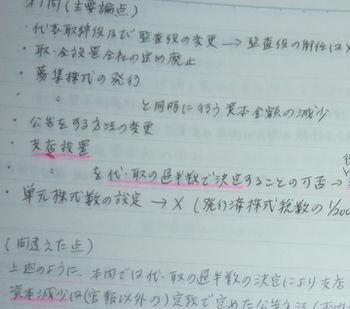 オ1問(主要論点)
・代表取締役及び監査役の変更 → 監査役の解任は
・取・会設置会社の定め廃止
・募集株式の発行
・　〃　と同時に行う資本金額の減少
・公告をする方法の変更
・支店設置
・　〃　を代・取の過半数で決定することの可否 →
・単元株式数の設定 → × (発行済株式総数の1/200
(間違えた点)
上述のように、本問では代・取の過半数の決定により支店
資本減少は(官報以外の)定款で定めた公告方法